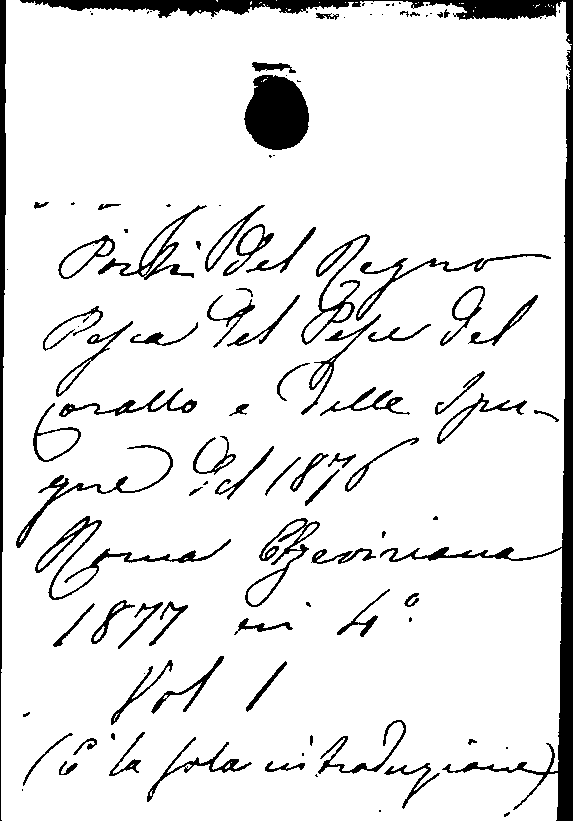 Porti del Regno
Pesca del Pesce del
corallo e delle Spu-
gne del 1876
Roma Elzeviriana
1877 in 4º
Vol 1
(È la sola introduzione)